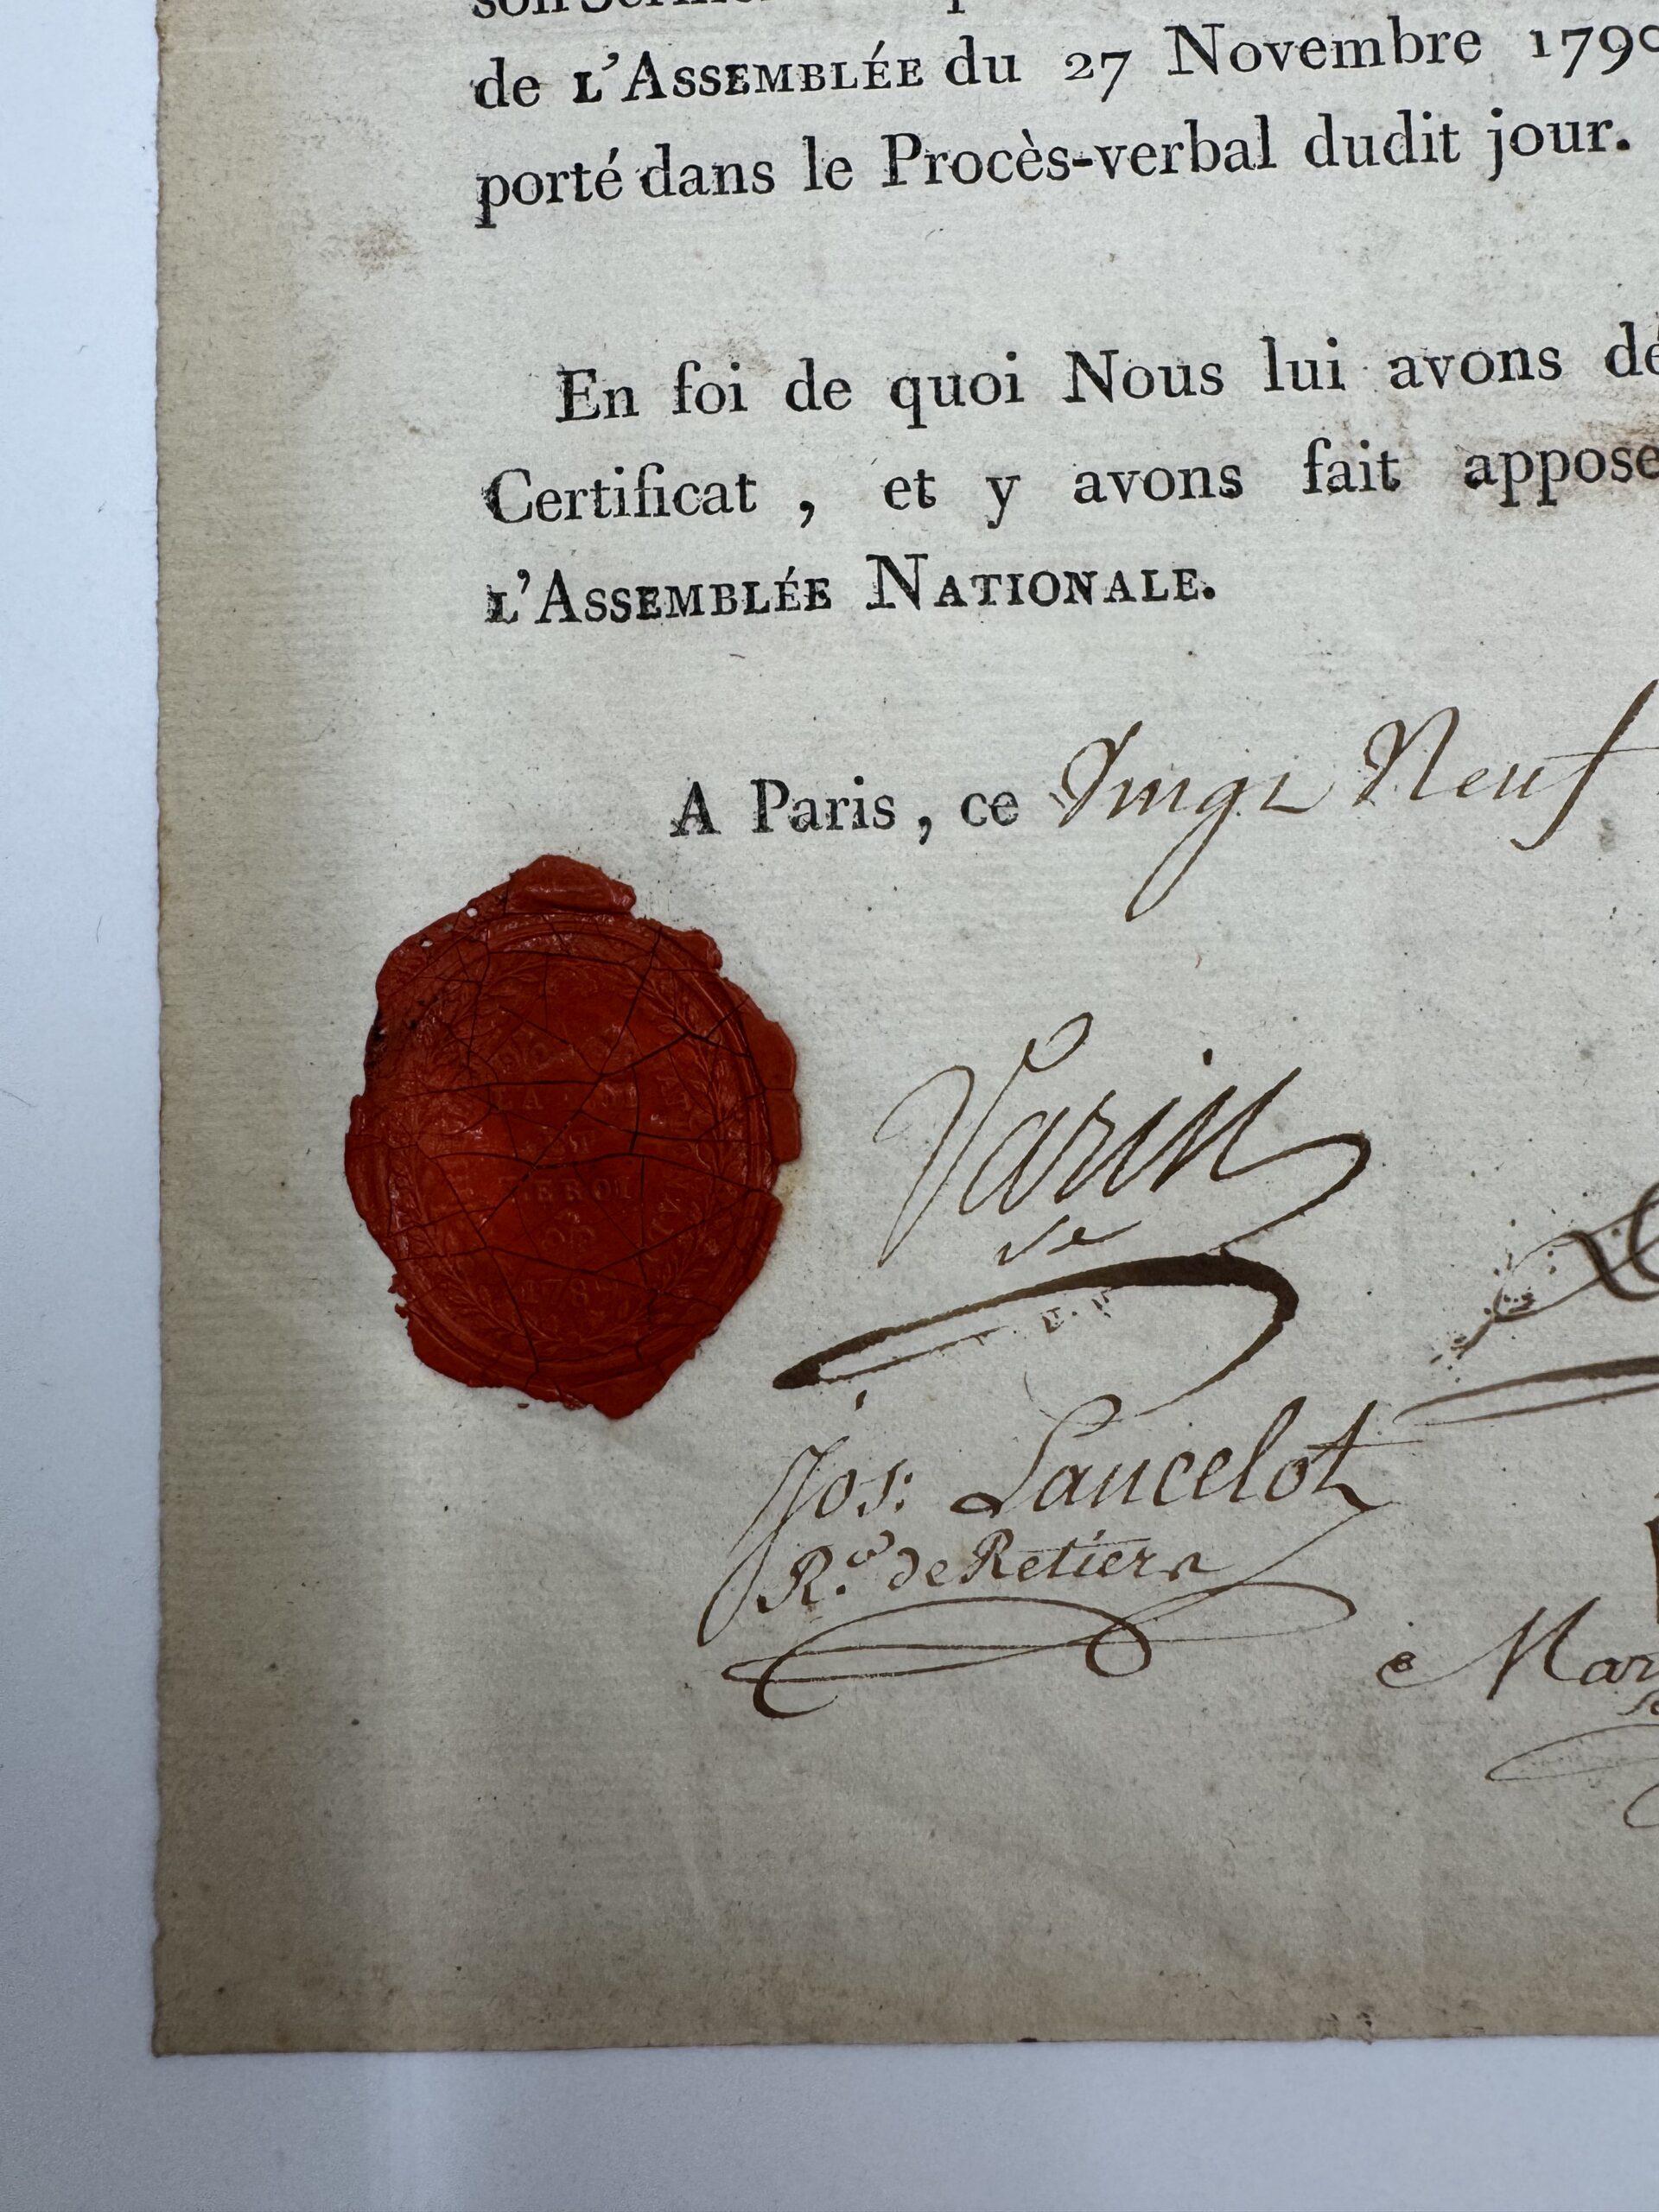 de L'ASSEMBLÉE du 27 Novembre 1790
porté dans le Procès-verbal dudit jour.
En foi de quoi Nous lui avons dé
Certificat, et y avons fait appose
L'ASSEMBLÉE NATIONALE.
A Paris, ce Vingt Neuf
LA LOI
ET
LE ROI
178
Varin
Jos: Lancelot
R.r de Retiers
Mar